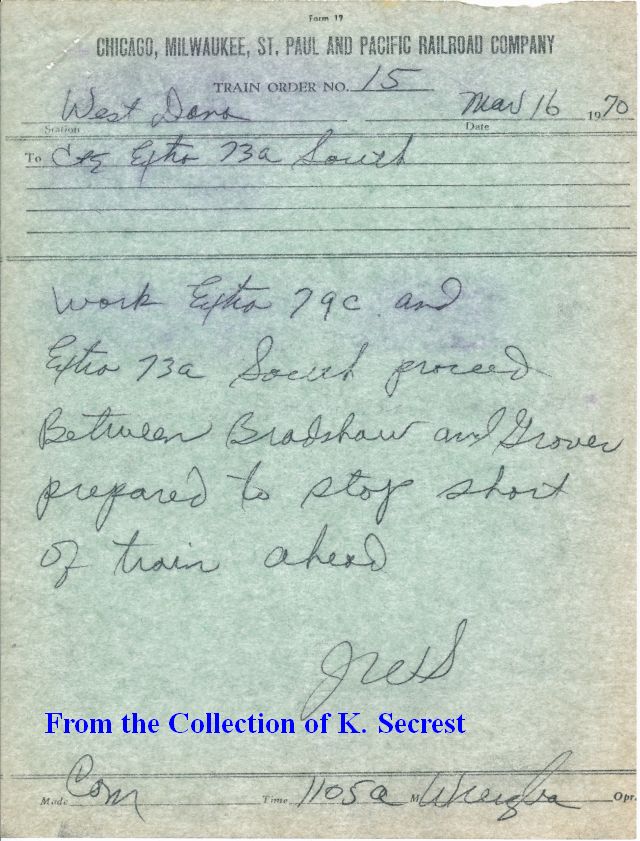 Form 19
CHICAGO, MILWAUKEE, ST. PAUL AND PACIFIC RAILROAD COMPANY
TRAIN ORDER NO. 15
West Dana Mar 16 1970
Station Date
To C&E Extra 73a South
Work Extra 79c and
Extra 73a South proceed
Between Bradshaw and Grover
prepared to stop short
of train ahead
From the Collection of K. Secrest
Made Com Time 1105a M Opr.